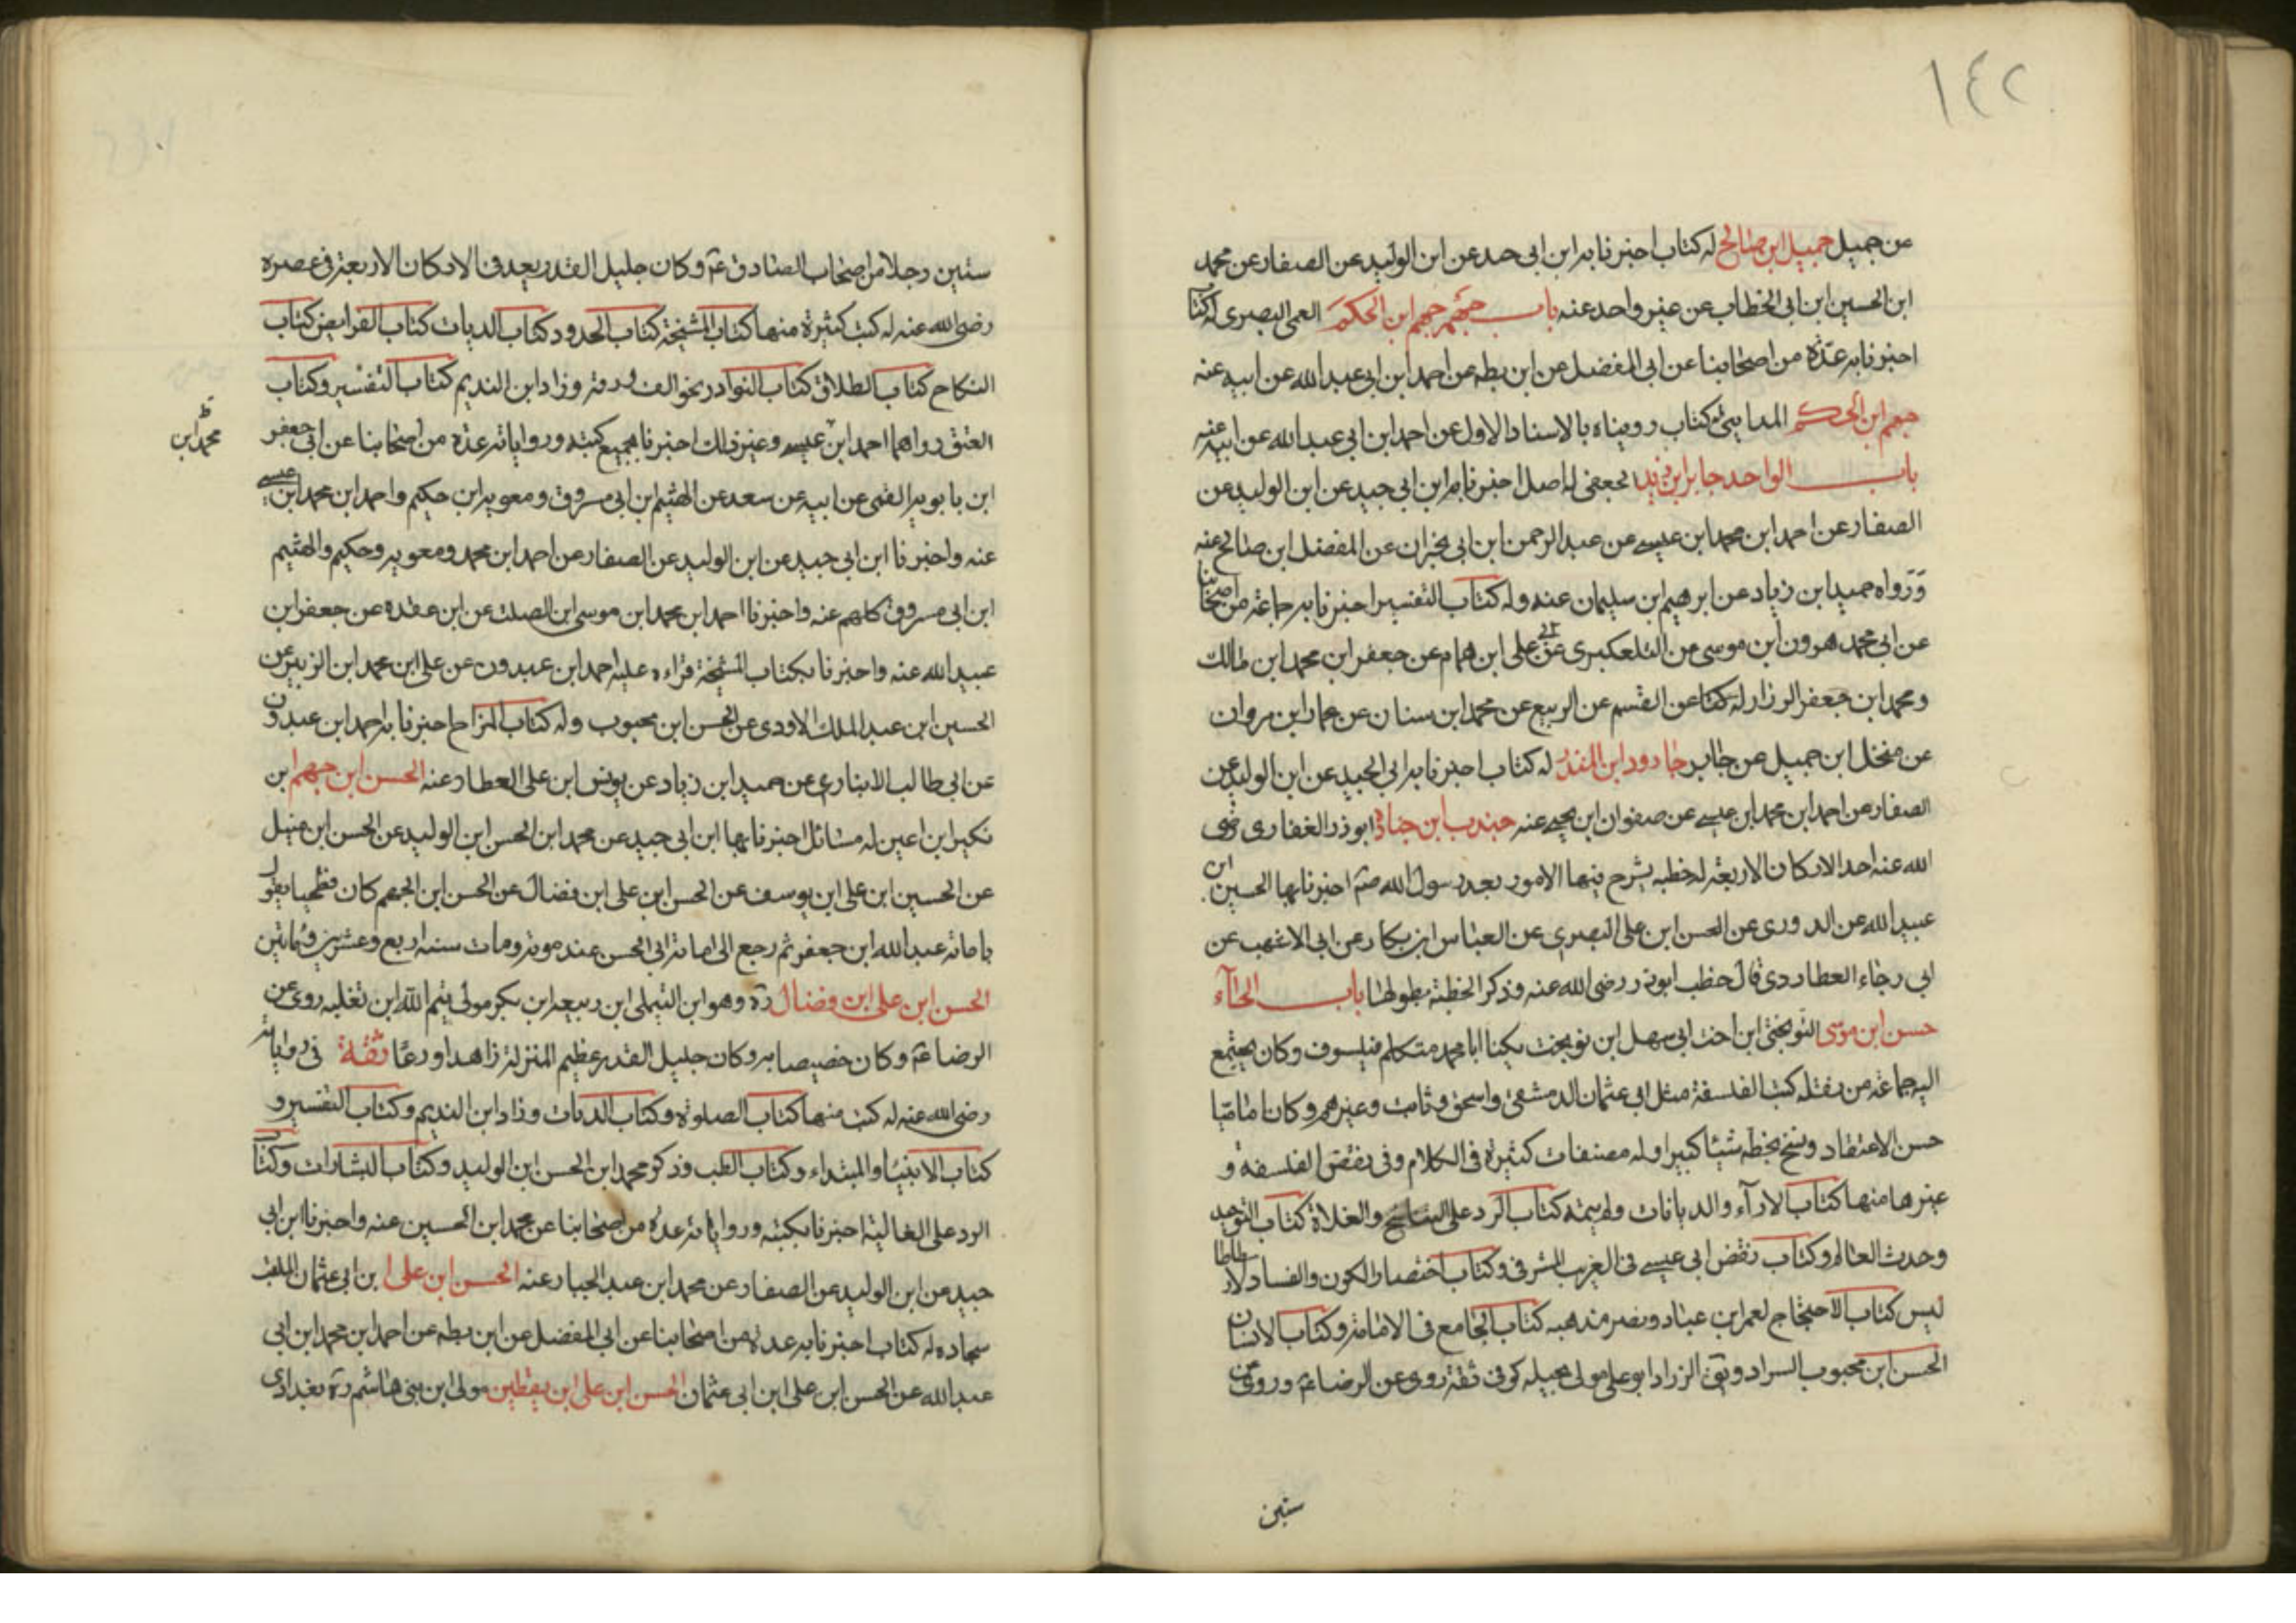 ١٤٢
عن جميل جميل ابن صالح له كتاب اخبرنا به ابن ابى جيد عن ابن الوليد عن الصفار عن محمد
ابن الحسين ابن ابى الخطاب عن غير واحد عنه باب جهم جهم ابن الحكم العمى البصرى له كتاب
اخبرنا به عدّة من اصحابنا عن ابى المفضل عن ابن بطه عن احمد ابن ابى عبد الله عن ابيه عنه
جهم ابن الحكم المداينى له كتاب رويناه بالاسناد الاول عن احمد ابن ابى عبد الله عن ابيه عنه
باب الواحد جابر ابن يزيد الجعفى له اصل اخبرنا به ابن ابى جيد عن ابن الوليد عن
الصفار عن احمد ابن محمد ابن عيسى عن عبد الرحمن ابن ابى نجران عن المفضل ابن صالح عنه
وَرَواه حميد ابن زياد عن ابرهيم ابن سليمان عنه وله كتاب التفسير اخبرنا به جماعة من اصحابنا
عن ابى محمد هرون ابن موسى من التلعكبرى عن ابى على ابن همام عن جعفر ابن محمد ابن مالك
ومحمد ابن جعفر الرزاز له كتا عن القسم عن الربيع عن محمد ابن سنان عن عمار ابن مروان
عن منخل ابن جميل عن جابر جارود ابن المنذر له كتاب اخبرنا به ابى الجيد عن ابن الوليد عن
الصفار عن احمد ابن محمد ابن عيسى عن صفوان ابن يحيى عنه جندب ابن جنادة ابو ذر الغفارى رضى
الله عنه احد الاركان الاربعة له خطبه يشرح فيها الامور بعد رسول الله صم اخبرنا بها الحسين ابن
عبيد الله عن الدورى عن الحسن ابن على البصرى عن العباس ابن بكار عن ابى الاشهب عن
ابى رجاء العطاردى قال خطب ابوذر رضى الله عنه وذكر الخطبة بطولها باب الحآء
حسن ابن موسى النوبختى ابن اخت ابى سهل ابن نوبخت يكنا ابا محمد متكلم فيلسوف وكان يجتمع
اليه جماعة من نقله كتب الفلسفة مثل ابى عثمان الدمشقى واسحق وثابت وغيرهم وكان اماميّا
حسن الاعتقاد ونسخ بخطه شيئا كبيرا وله مصنفات كثيرة فى الكلام وفى نقض الفلسفة و
غيرها منها كتاب الارآء والديانات ولم يتمه كتاب الرد على التناسخ والغلاة كتاب التوحيد
وحدث العالم وكتاب نقض ابى عيسى فى الغريب المشرقى وكتاب اختصار الكون والفساد لارسطاطا
ليس كتاب الاحتجاج لعمر ابن عباد ونصر مذهبه كتاب الجامع فى الامامة وكتاب الانسان
الحسن ابن محبوب السراد ويق الزراد ابو على مولى بجيله كوفى ثقة روى عن الرضا عم وروى عن
ستين
ستين رجلا من اصحاب الصادق عم وكان جليل القدر يعد فى الاركان الاربعة فى عصره
رضى الله عنه له كتب كثيرة منها كتاب المشيخة كتاب الحدود كتاب الديات كتاب الفرايض كتاب
النكاح كتاب الطلاق كتاب النوادر نحو الف ورقة وزاد ابن النديم كتاب التفسير وكتاب
العتق رواهما احمد ابن عيسى وغير ذلك اخبرنا بجميع كتبه ورواياته عدة من اصحابنا عن ابى جعفر
محمد ابن
ابن بابويه القمى عن ابيه عن سعد عن الهثيم ابن ابى مسروق ومعويه ابن حكيم واحمد ابن محمد ابن عيسى
عنه واخبرنا ابن ابى جيد عن ابن الوليد عن الصفار عن احمد ابن محمد ومعويه وحكيم والهثيم
ابن ابى مسروق كلهم عنه واخبرنا احمد ابن محمد ابن موسى ابن الصلت عن ابن عقدة عن جعفر ابن
عبيد الله عنه واخبرنا بكتاب المشيخة قراءه عليه احمد ابن عبدون عن على ابن محمد ابن الزبير عن
الحسين ابن عبد الملك الاودى عن الحسن ابن محبوب وله كتاب المزاح اخبرنا به احمد ابن عبدون
عن ابى طالب الانبارى عن حميد ابن زياد عن يونس ابن على العطار عنه الحسن ابن جهم ابن
بكير ابن اعين له مسائل اخبرنا بها ابن ابى جيد عن محمد ابن الحسن ابن الوليد عن الحسن ابن متيل
عن الحسين ابن على ابن يوسف عن الحسن ابن على ابن فضال عن الحسن ابن الجهم كان فطحيا يقول
بامامة عبد الله ابن جعفر ثم رجع الى امامة ابى الحسن عند موته ومات سنه اربع وعشرين ومائتين
الحسن ابن على ابن فضال ره وهو ابن التيملى ابن ربيعه ابن بكر مولى تيم الله ابن ثعلبه روى عن
الرضا عم وكان خصيصا به وكان جليل القدر عظيم المنزلة زاهدا ورعا ثقة فى رواياته
رضى الله عنه له كتب منها كتاب الصلوة وكتاب الديات وزاد ابن النديم وكتاب التفسير و
كتاب الانبيا والمبتداء وكتاب الطب وذكر محمد ابن الحسن ابن الوليد وكتاب البشارات وكتاب
الرد على الغالية اخبرنا بكتبه ورواياته عدة من اصحابنا عن محمد ابن الحسين عنه واخبرنا ابن ابى
جيد عن ابن الوليد عن الصفار عن محمد ابن عبد الجبار عنه الحسن ابن على ابن ابى عثمان الملقب
سجاده له كتاب اخبرنا به عدة من اصحابنا عن ابى المفضل عن ابن بطه عن احمد ابن محمد ابن ابى
عبد الله عن الحسن ابن على ابن ابى عثمان الحسن ابن على ابن يقطين مولى ابن بنى هاشم ره بغدادى